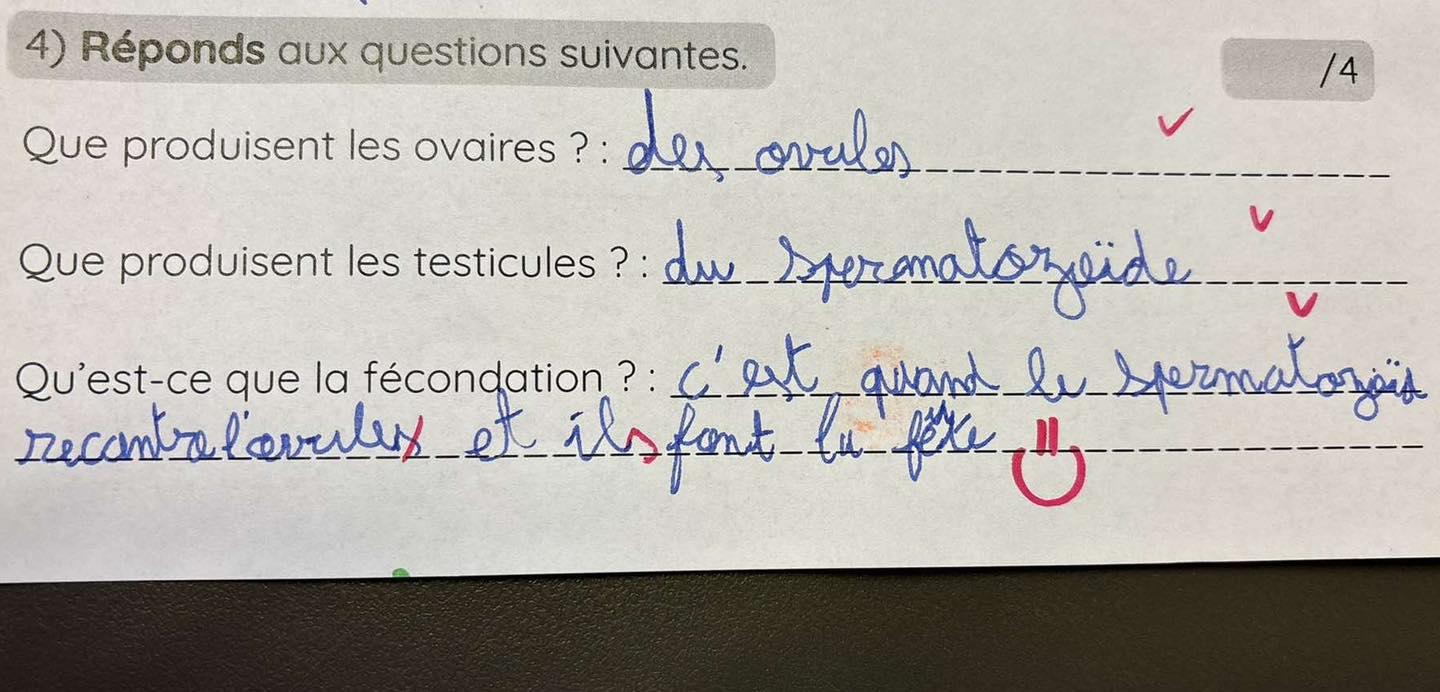 4) Réponds aux questions suivantes.
/4
Que produisent les ovaires ? : des ovules
Que produisent les testicules ? : du spermatozoïde
Qu'est-ce que la fécondation ? : c'est quand le spermatozoïd
recontre l'ovules et ils font la fête